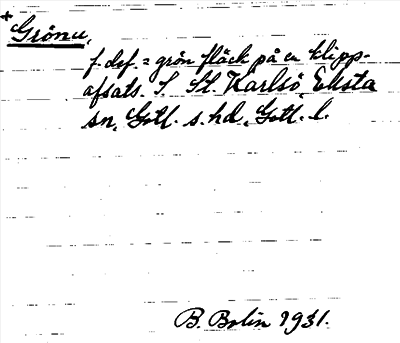 * Grönu,
f. def. = grön fläck på en klipp-
afsats. I. St. Karlsö, Eksta
sn, Gotl. s. hd, Gotl. l.
B. Bolin 1931.